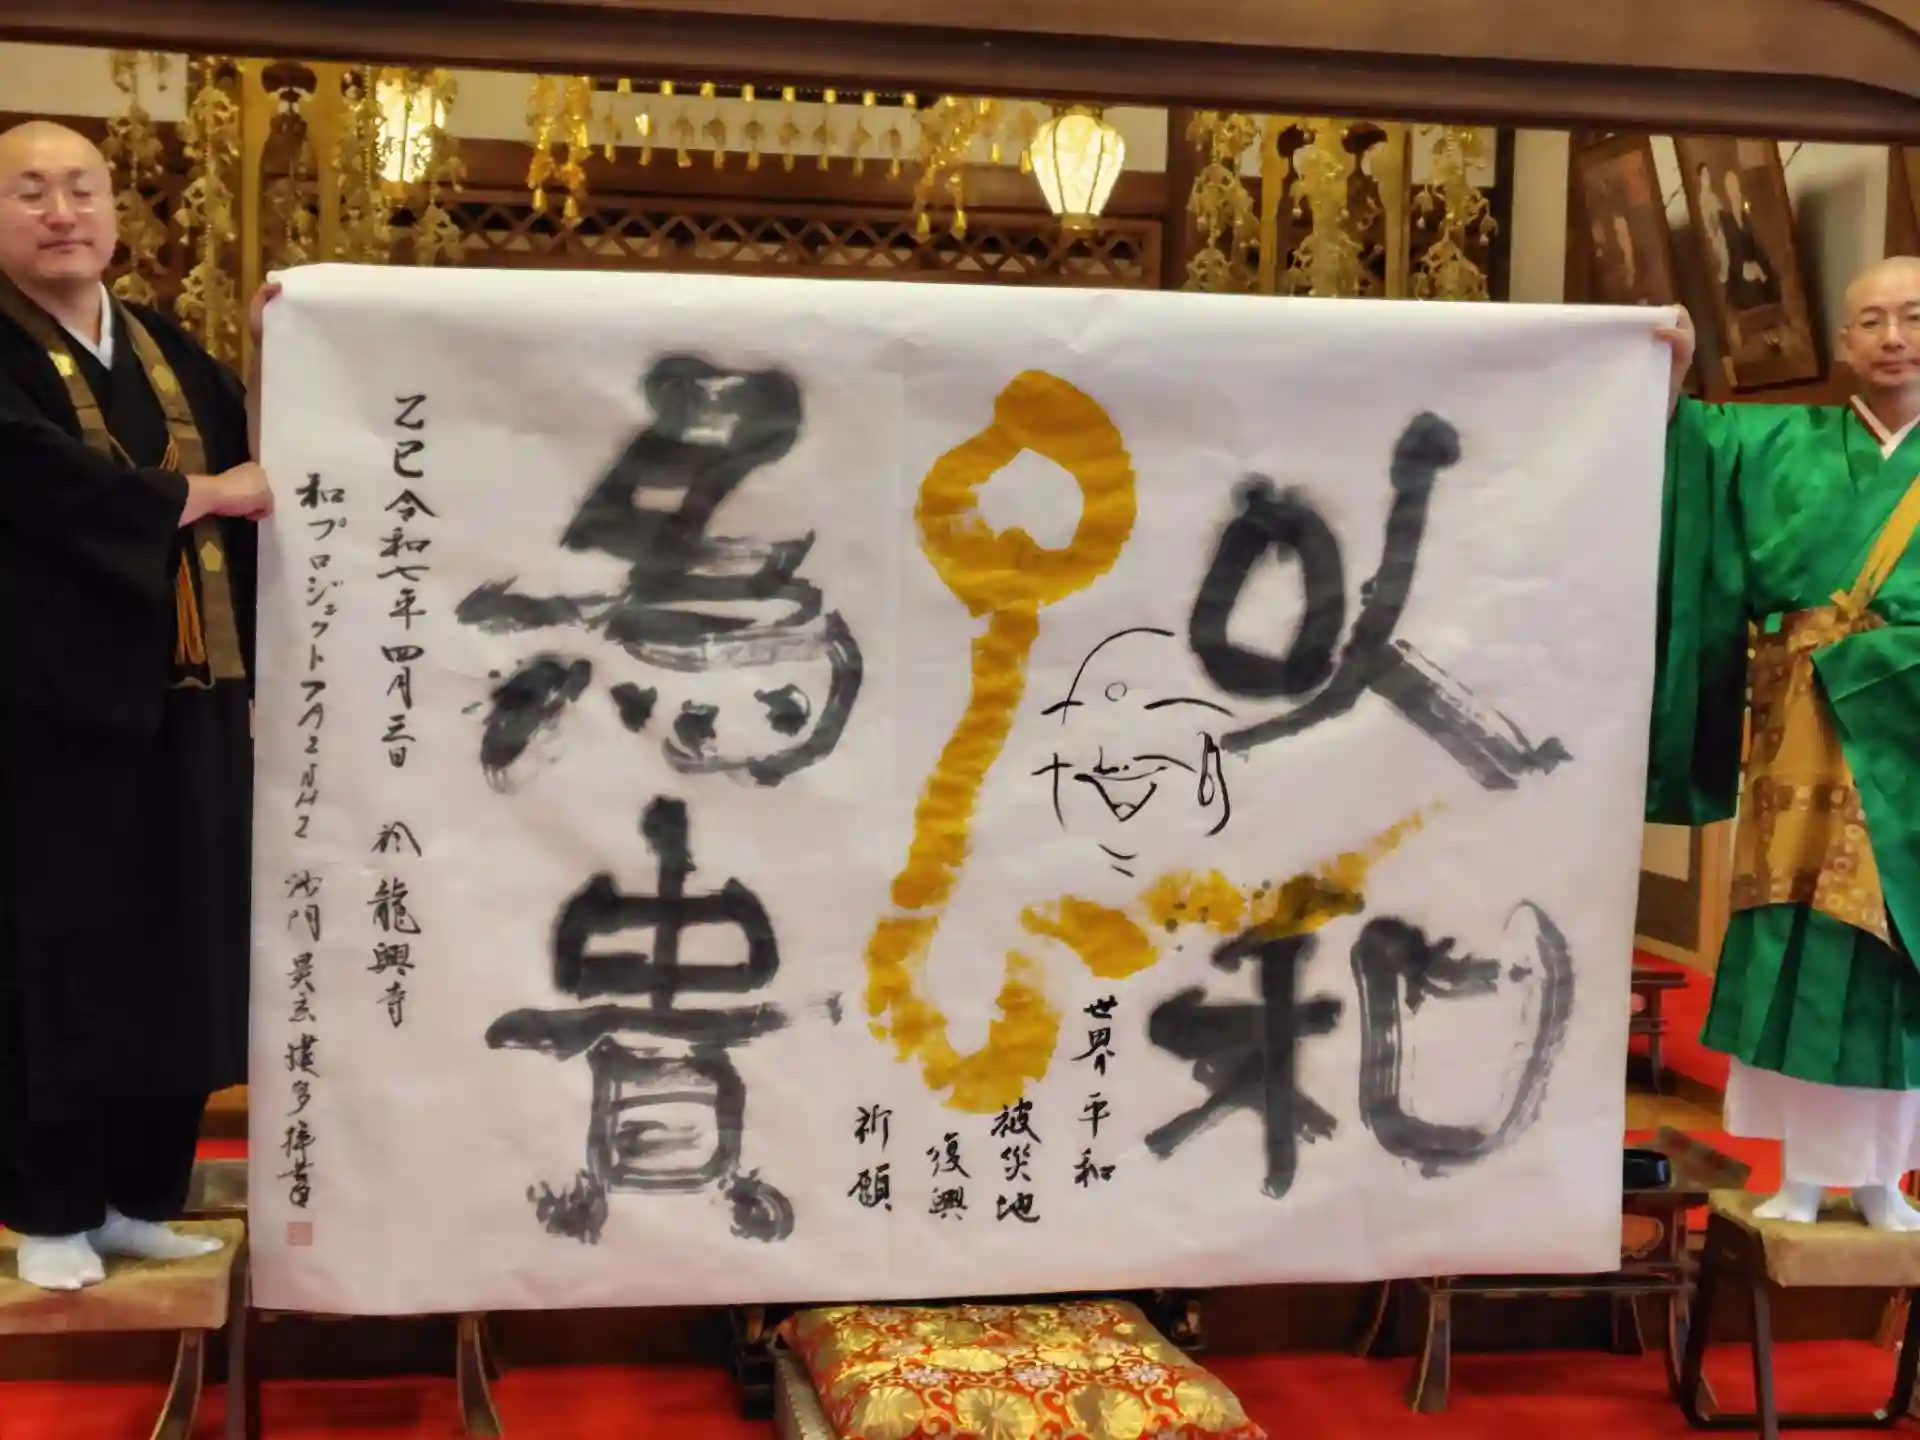 以和
為貴
世界平和
被災地
復興
祈願
乙巳令和七年四月三日 於 龍興寺
和プロジェクトTAISHI 沙門 昊玄